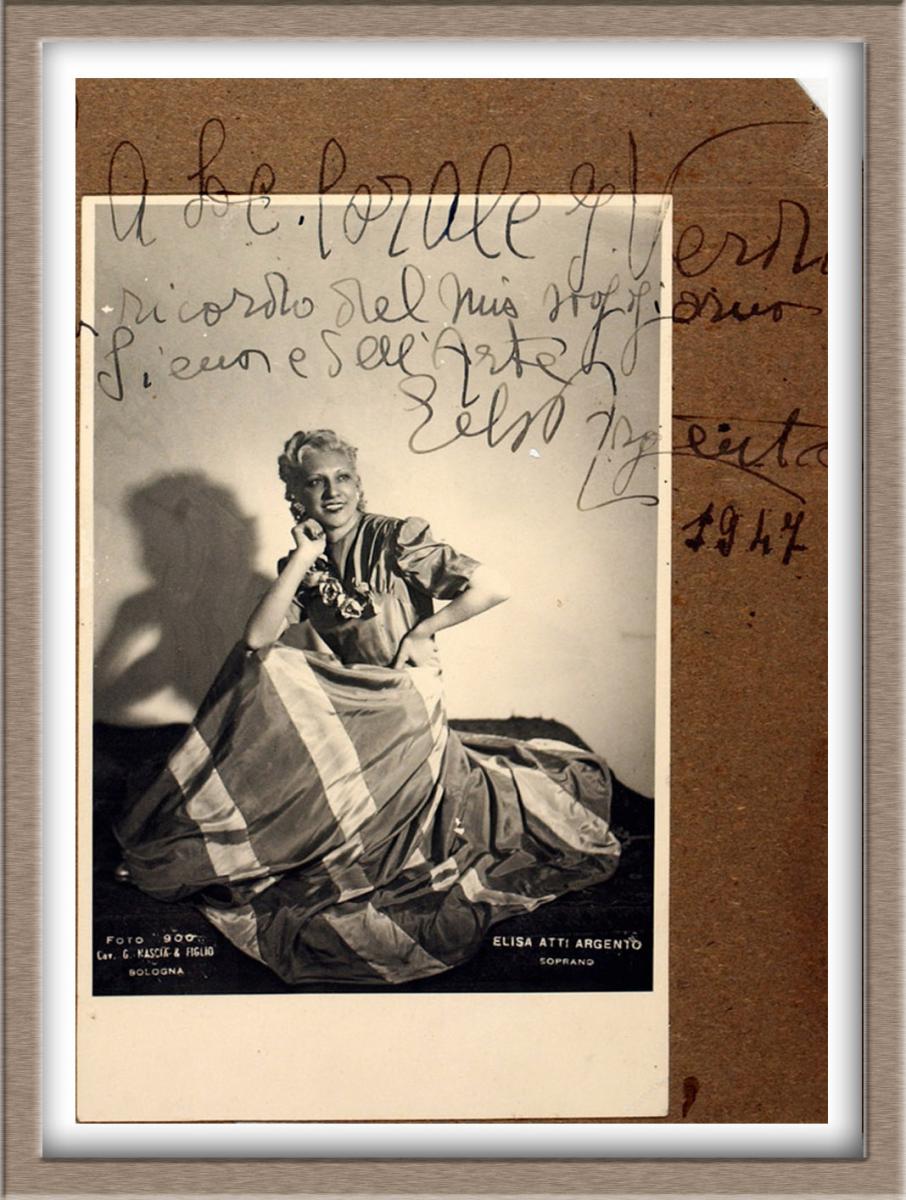 A Soc. Corale G. Verdi
ricordo del mio soggiorno
e dell'Arte
Elsa Argento
1947
FOTO 900
Cav. G. NASCIA & FIGLIO
BOLOGNA
ELISA ATTI ARGENTO
SOPRANO